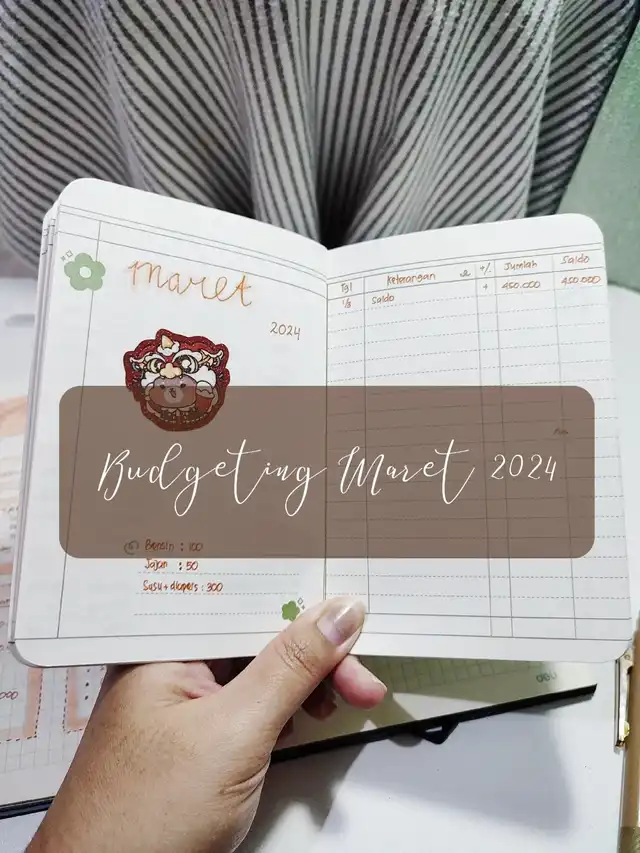 maret
2024
Bensin : 100
Jajan : 50
Susu + diapers : 300
Tgl Keterangan +/- Jumlah Saldo
1/3 Saldo + 450.000 450.000
Budgeting Maret 2024